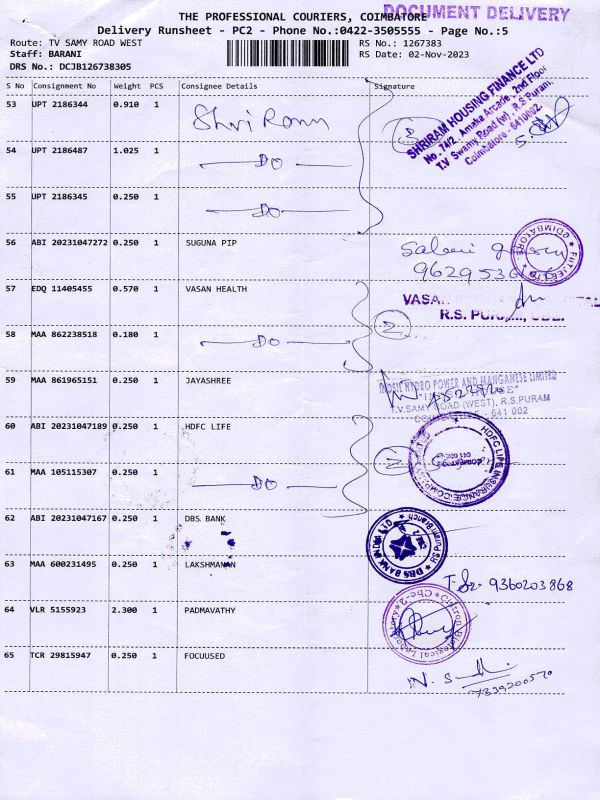 DOCUMENT DELIVERY
THE PROFESSIONAL COURIERS, COIMBATORE
Delivery Runsheet - PC2 - Phone No.:0422-3505555 - Page No.:5
Route: TV SAMY ROAD WEST RS No.: 1267383
Staff: BARANI RS Date: 02-Nov-2023
DRS No.: DCJB126738305
S No Consignment No Weight PCS Consignee Details Signature
53 UPT 2186344 0.910 1 Shri Ram
3
SHRIRAM HOUSING FINANCE LTD
No. 74/2, Amsha Arcade, 2nd Floor
T.V. Swamy Road (w), R.S Puram,
Coimbatore - 641002.
54 UPT 2186487 1.025 1 — DO —
55 UPT 2186345 0.250 1 — DO —
56 ABI 20231047272 0.250 1 SUGUNA PIP
COIMBATORE
FIITJEE LTD
57 EDQ 11405455 0.570 1 VASAN HEALTH
VASAN
R.S. PURAM,
2
58 MAA 862238518 0.180 1 — DO —
59 MAA 861965151 0.250 1 JAYASHREE
HYDRO POWER AND MANGANESE LIMITED
T.V.SAMY ROAD (WEST), R.S.PURAM
COIMBATORE - 641 002
60 ABI 20231047189 0.250 1 HDFC LIFE
HDFC LIFE INSURANCE COMPANY LTD
61 MAA 105115307 0.250 1 — DO —
62 ABI 20231047167 0.250 1 DBS BANK
DBS BANK INDIA LTD
RS Puram Branch
63 MAA 600231495 0.250 1 LAKSHMANAN
9360203868
64 VLR 5155923 2.300 1 PADMAVATHY
65 TCR 29815947 0.250 1 FOCUUSED
N. S
7339200570